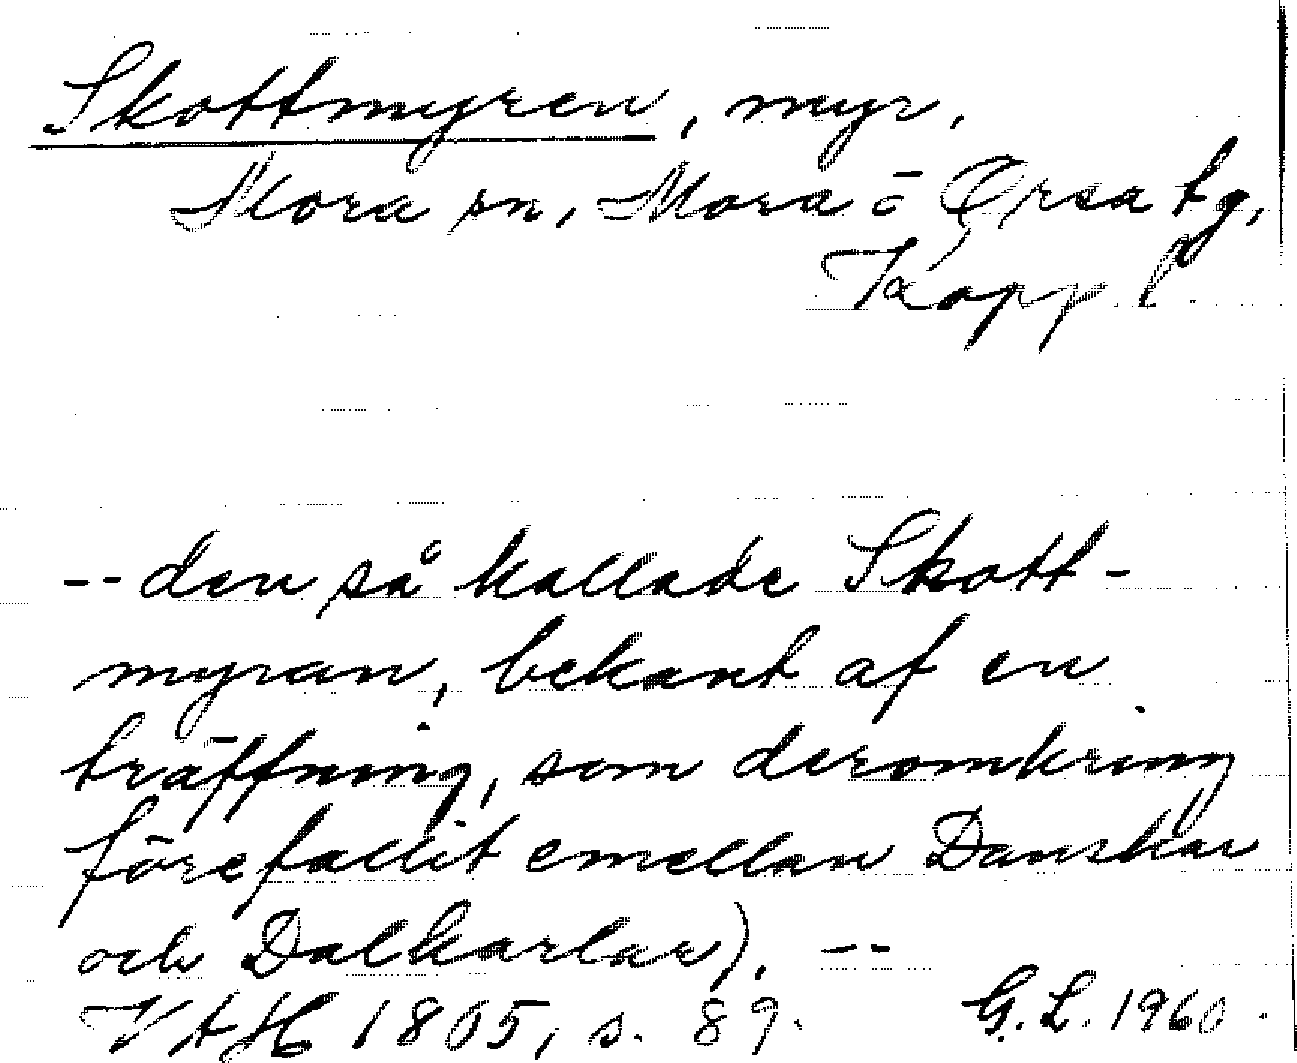 Skottmyren, myr.
Mora sn, Mora = Orsa tg,
Kopp. l.
-- den så kallade Skott-
myran, bekant af en
träffning, som deromkring
förefallit emellan Danskar
och Dalkarlar). --
VAH 1805, s. 89. G. L. 1960.